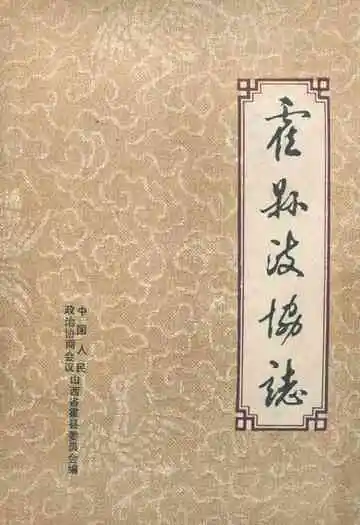 霍县政协誌
中国人民
政治协商会议山西省霍县委员会编